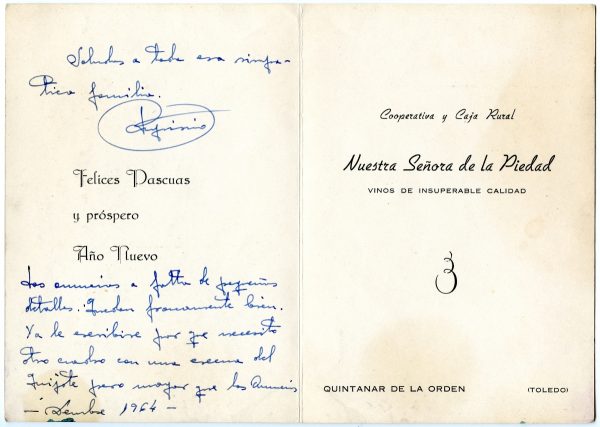 Saludos a toda esa simpa-
tica familia.
Felices Pascuas
y próspero
Año Nuevo
Los anuncios a falta de pequeños
detalles. Quedan francamente bien.
Ya le escribire por qe necesito
otro cuadro con una escena del
Quijote pero mayor que los Anuncios
- 1964 -
Cooperativa y Caja Rural
Nuestra Señora de la Piedad
VINOS DE INSUPERABLE CALIDAD
QUINTANAR DE LA ORDEN (TOLEDO)